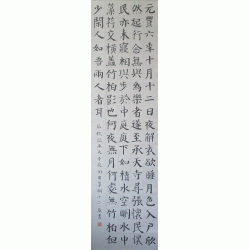 元豐六年十月十二日夜解衣欲睡月色入戶欣
然起行念無與為樂者遂至承天寺尋張懷民懷
民亦未寢相與步於中庭庭下如積水空明水中
藻荇交橫蓋竹柏影也何夜無月何處無竹柏但
少閒人如吾兩人者耳